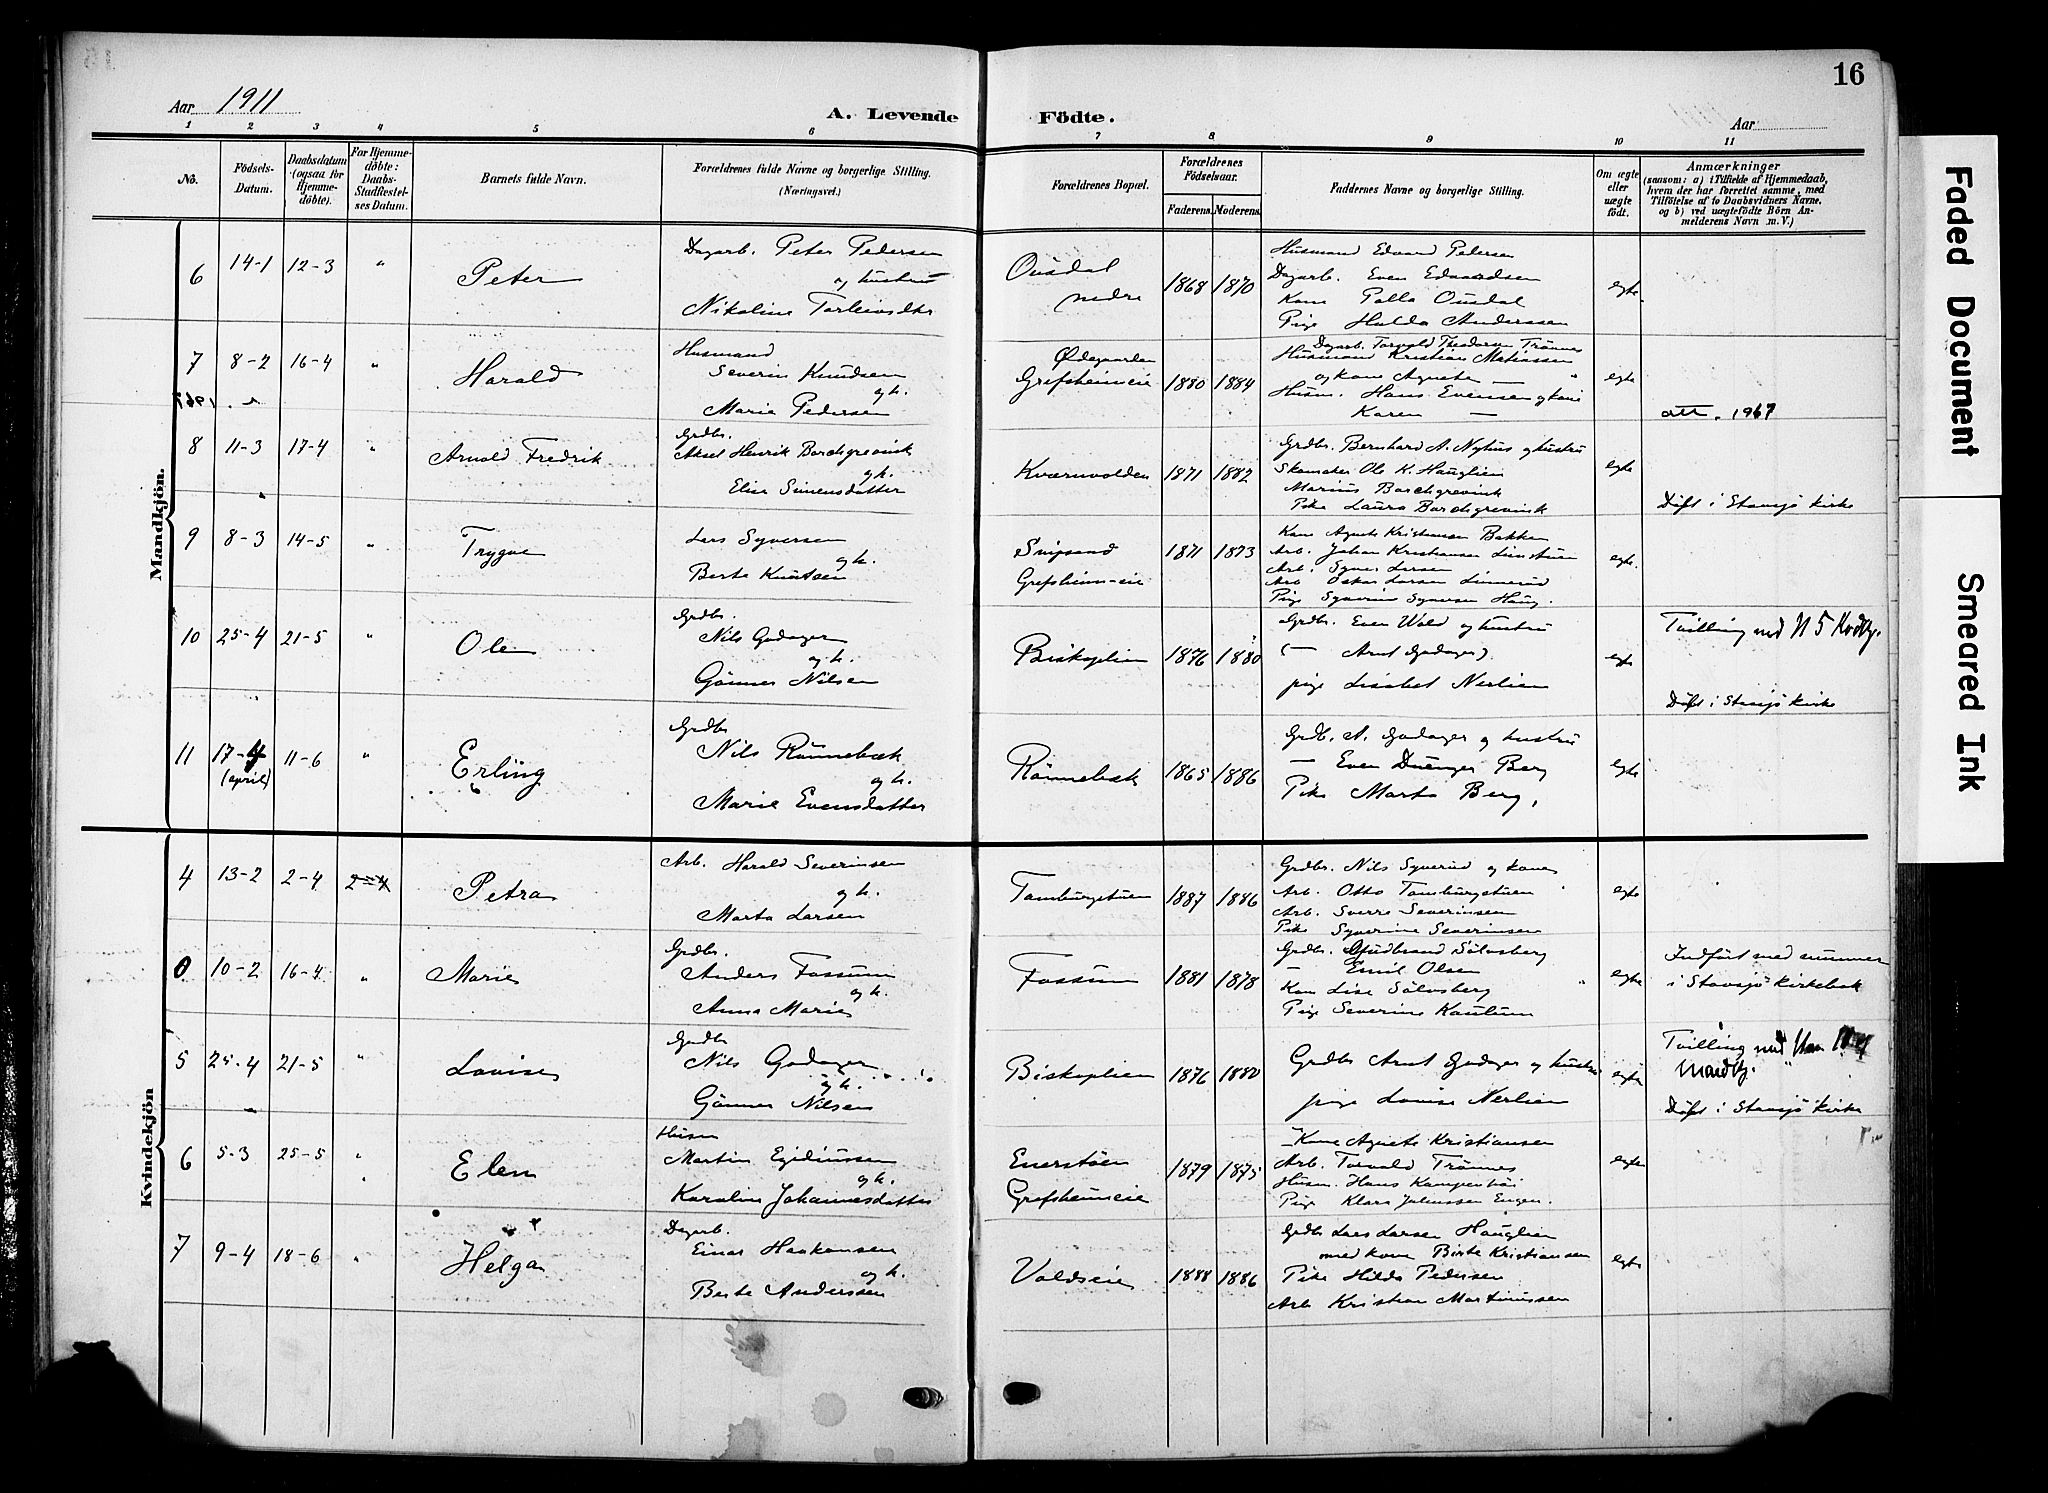 16
Aar 1911
A. Levende Födte.
Aar
1 2 3 4 5 6 7 8 9 10 11
No.
Födsels-Datum.
Daabsdatum (ogsaa for Hjemmedöbte).
For Hjemmedöbte: Daabs-Stadfæstelses Datum.
Barnets fulde Navn.
Forældrenes fulde Navne og borgerlige Stilling. (Næringsvei.)
Forældrenes Bopæl.
Forældrenes Födselsaar.
Faderens. Moderens.
Faddernes Navne og borgerlige Stilling.
Om ægte eller uægte födt.
Anmærkninger
(saasom: a) i Tilfælde af Hjemmedaab, hvem der har forrettet samme, med Tilföielse af to Daabsvidners Navne, og b) ved uægtefödte Börn Anmelderens Navn m. V.)
Mandkjön.
6 14-1 12-3 " Peter
Dagarb. Peter Pedersen
og hustru
Nikoline Torleivsdtr
Ousdal
nedre
1868 1870
Husmand Edvard Pedersen
Dagarb. Even Edvardsen
Kone Palla Ousdal
Pige Hulda Anderssen
egte
7 8-2 16-4 " Harald
Husmand
Severin Knudsen
og h.
Marie Pedersen
Ødegaarden
Grefsheimeie
1880 1884
Dagarb. Torvald Theodorsen Trönnes
Husmand Kristian Matiassen
og kone Agnete — "
Husm. Hans Evensen og kone
Karen —
egte
att. 1967
8 11-3 17-4 " Arnold Fredrik
Grdbr.
Aksel Henrik Borchgrevink
og h.
Elise Simensdatter
Kværnvolden
1871 1882
Grdbr. Bernhard A. Nyhus og hustru
Skomaker Ole K. Hauglien
Marius Borchgrevink
Pike Laura Borchgrevink
egte
Döpt i Stavsjö kirke
9 8-3 14-5 " Trygve
Lars Syversen
og h.
Berte Knutsen
Snipsand
Grefsheim-eie
1871 1873
Kone Agnete Kristiansen Bakken
Arb. Johan Kristiansen Linstuen
Arb. Syver Larsen
Arb Oskar Larsen Linnerud
Pige Syverine Syversen Haug.
egte.
10 25-4 21-5 " Ole
Grdbr.
Nils Godager
og h.
Gönner Nilsen
Biskoplien
1876 1880
Grdbr. Even Wold og hustru
(— Arnt Godager).
pige Lisabet Nerlien
egte
Tvilling med N 5 Kvdkj.
Döpt i Stavsjö kirke
11 17-4 (april) 11-6 " Erling
Grdbr
Nils Rönnebæk
og h.
Marie Evensdatter
Rönnebæk
1865 1886
Grdb. A. Godager og hustru
— Even Duenger Berg
Pike Marta Berg,
egte
Kvindekjön
4 13-2 2-4 2-4 Petra
Arb. Harald Severinsen
og h.
Marta Larsen
Tamburstuen
1887 1886
Grdbr. Nils Syverud og kone
Arb. Otto Tamburstuen
Arb. Sverre Severinsen
Pike Syverine Severinsen
egte
0 10-2 16-4 " Marie
Grdbr.
Anders Fossum
og h.
Anna Marie
Fossum
1881 1878
Grdbr. Gudbrand Sölvsberg
— Emil Olsen
Kone Lise Sölvsberg
Pige Severine Kautum
egte
Indfört med nummer
i Stavsjö kirkebok
5 25-4 21-5 " Lovise
Grdbr
Nils Godager
og h.
Gönner Nilsen
Biskoplien
1876 1880
Grdbr Arnt Godager og hustru
pige Lovise Nerlien
egte
Tvilling med
Mandkj.
Döpt i Stavsjö kirke
6 5-3 25-5 " Elen
Husm
Martin Egidiussen
og h.
Karoline Johannesdatter
Enerstöen
Grefsheimeie
1879 1875
Kone Agnete Kristiansen
Arb. Torvald Trönnes
Husm. Hans Kampenhöi
Pige Klara Johanssen Engen.
egte
7 9-4 18-6 " Helga
Dagarb.
Einar Haakonsen
og h.
Berte Anderssen
Voldseie
1888 1886
Grdbr Lars Larsen Hauglien
med kone Birte Kristiansen
Pike Hilda Pedersen
Arb Kristian Martinussen
egte
Faded Document
Smeared Ink